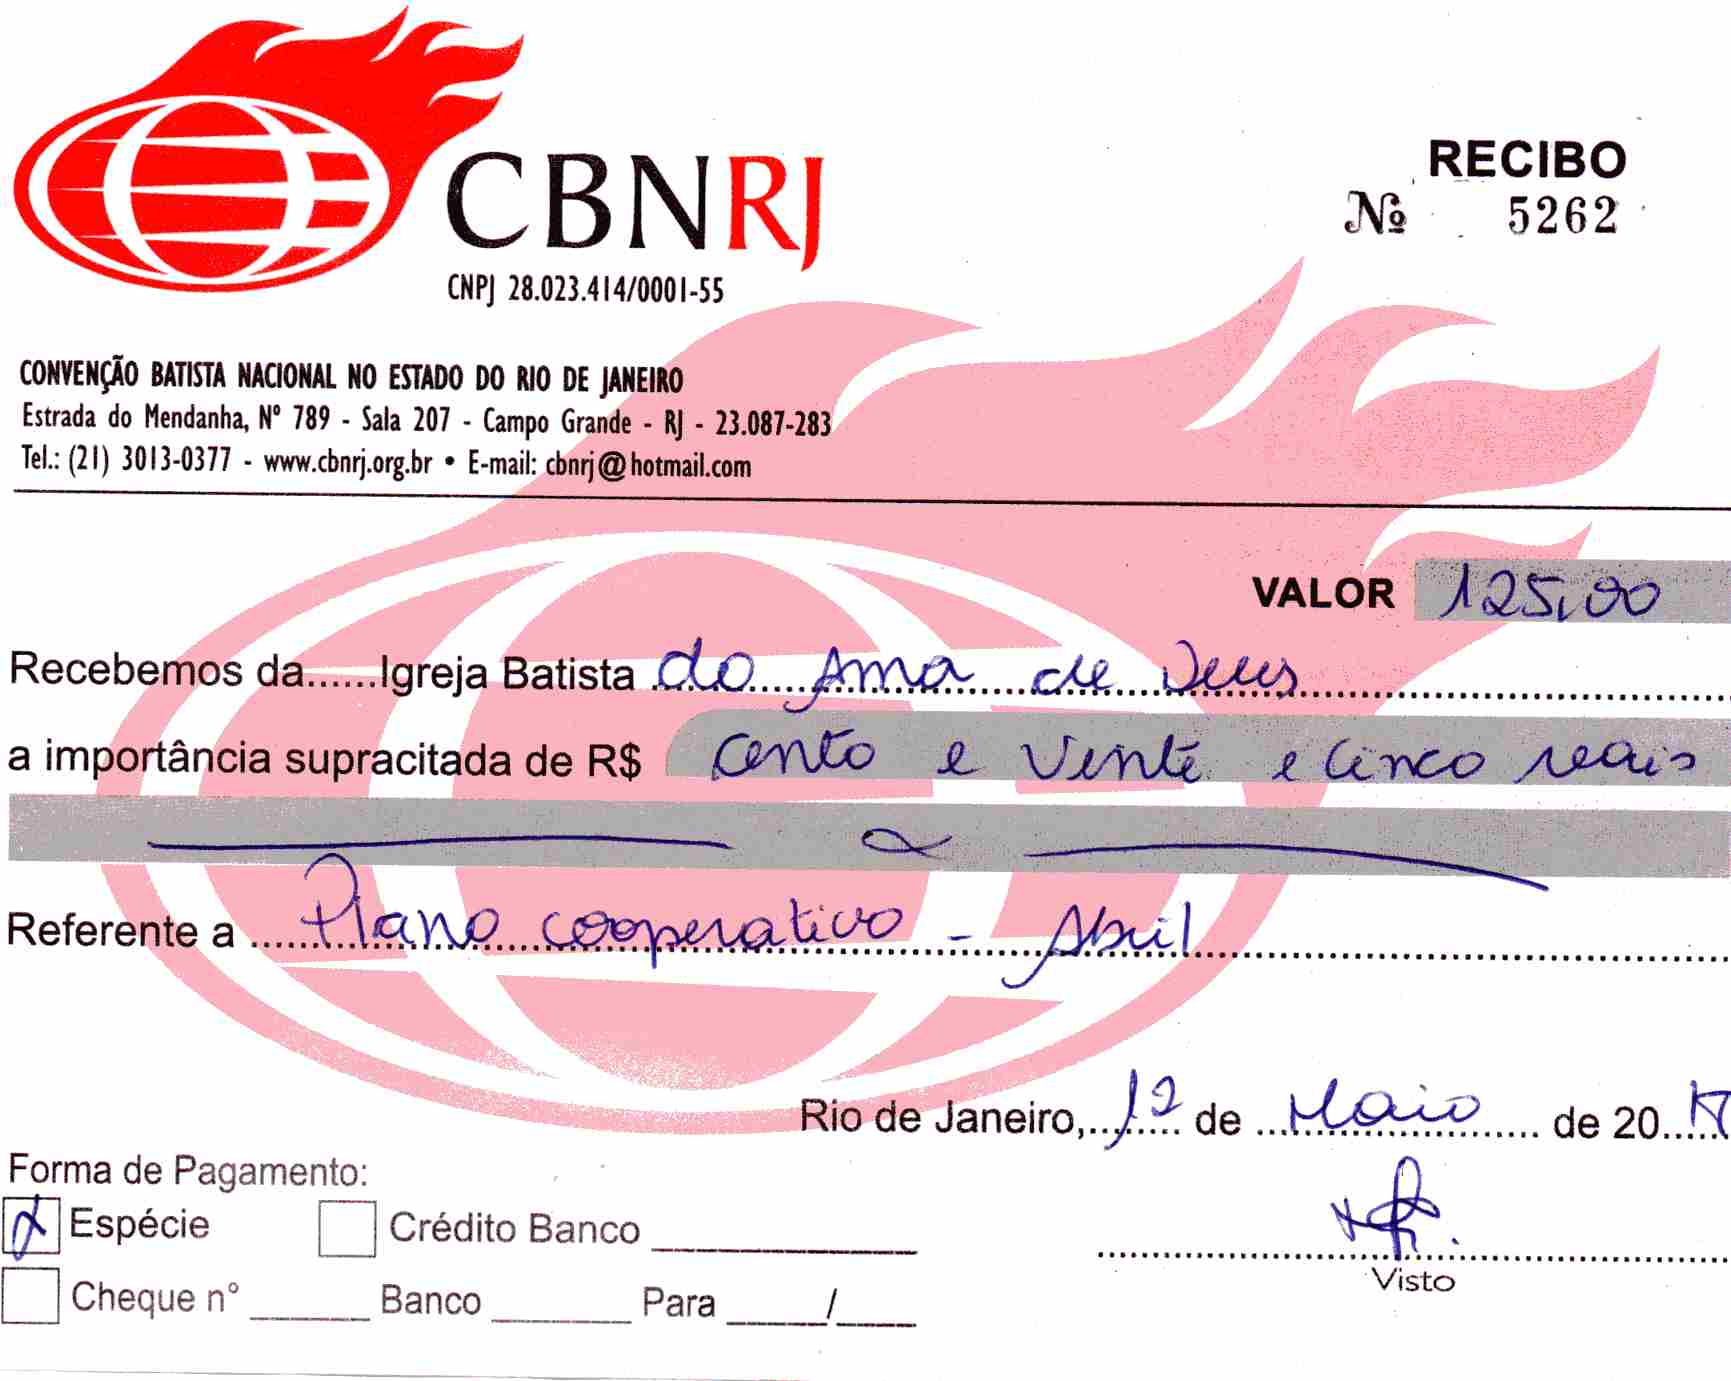 CBNRJ
CNPJ 28.023.414/0001-55
RECIBO
Nº 5262
CONVENÇÃO BATISTA NACIONAL NO ESTADO DO RIO DE JANEIRO
Estrada do Mendanha, Nº 789 - Sala 207 - Campo Grande - RJ - 23.087-283
Tel.: (21) 3013-0377 - www.cbnrj.org.br • E-mail: cbnrj@hotmail.com
VALOR 125,00
Recebemos da......Igreja Batista do Ama de Deus
a importância supracitada de R$ Cento e Vinte e Cinco reais
Referente a Plano cooperativo - Abril
Rio de Janeiro, 12 de Maio de 2017
Forma de Pagamento:
Espécie Crédito Banco
Visto
Cheque n° Banco Para /